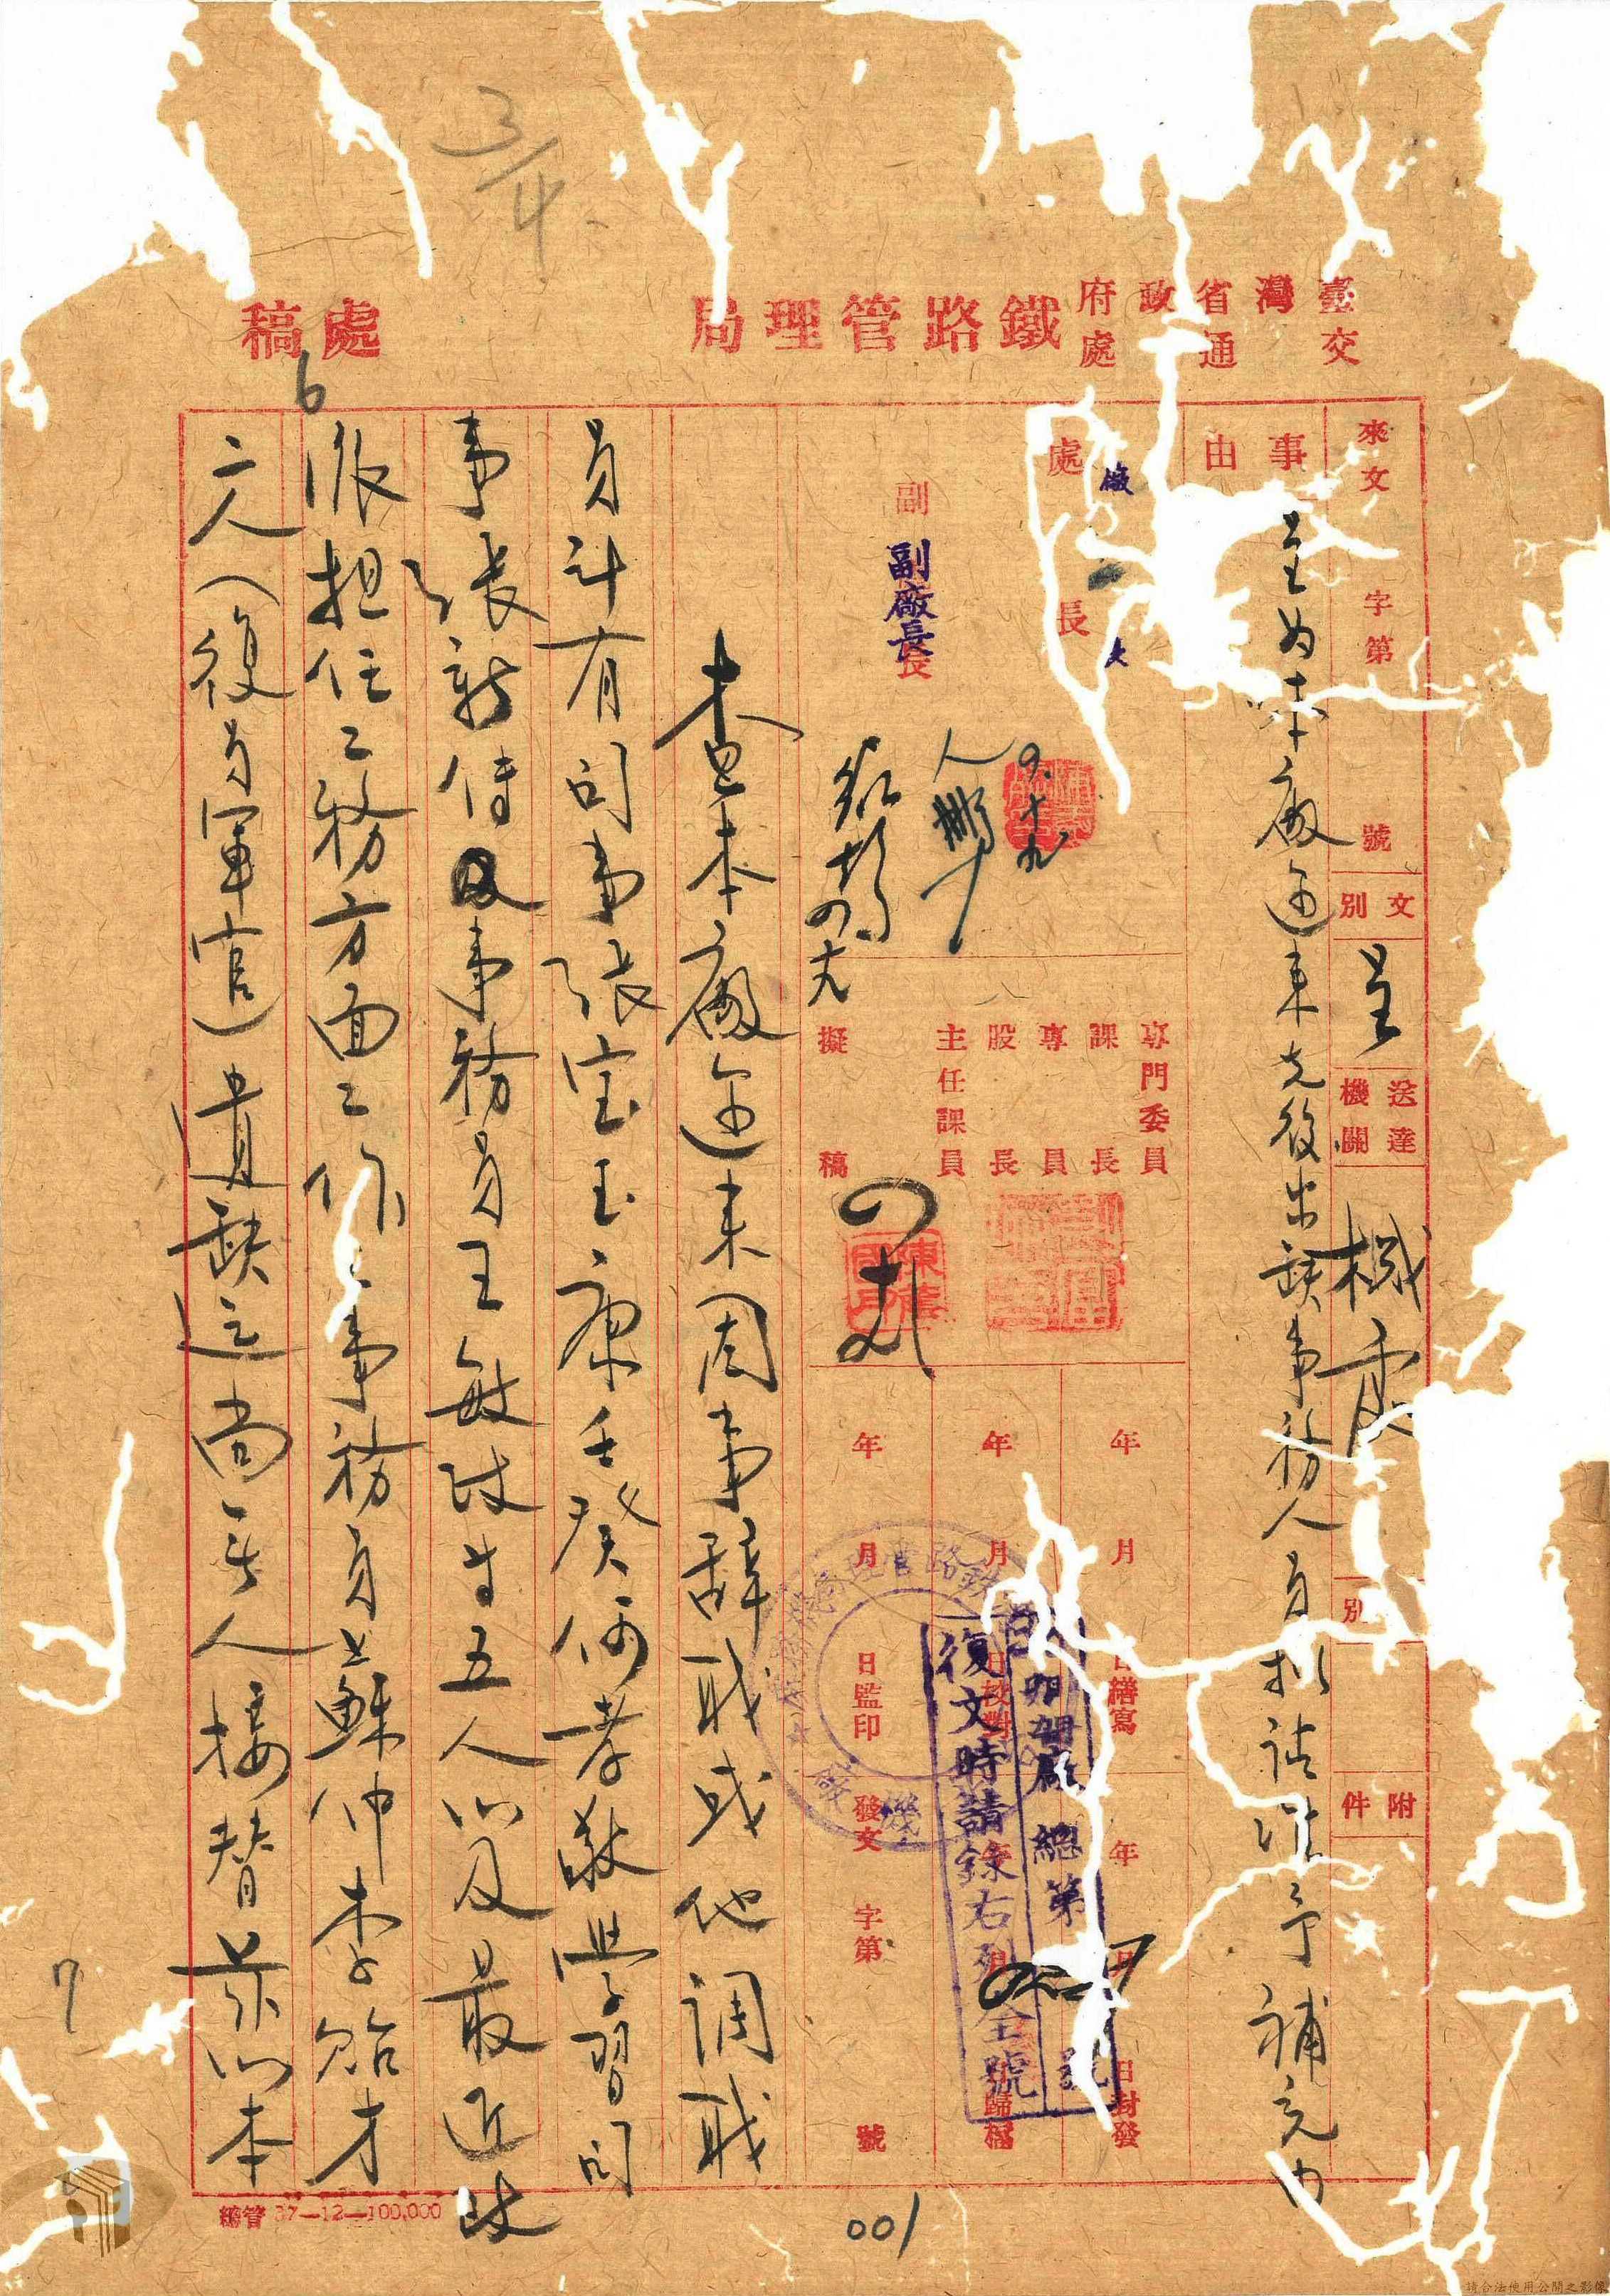 3/4
臺灣省政府
交通處
鐵路管理局
處稿
來文 字第 號
文別 呈
送達機關 機務處
別
附件
事由
呈為本廠近來先後出缺事務人員擬請准予補充由
處長
廠長
副長
副廠長
專門委員
課長
專員
股長
主任課員
擬稿
年 月 日繕寫
年 月 日校對
年 月 日監印
年 月 日封發
歸檔
發文 字第 號
總第 號
復文時請錄右列全號
查本廠近來因事辭職或他調職
員計有司事張宝玉康壬癸何孝敬學習司
事張新傳及事務員王敏政等五人以及最近改
派担任工務方面工作之事務員蘇仲李貽才
二人(復員軍官)遺缺迄尚無人接替茲以本
6
7
總管 37—12—100,000
001
請合法使用公開之影像